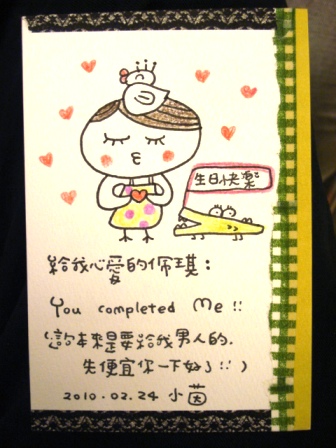 生日快樂
給我心愛的佩璞：
You completed Me !!
(這本來是要給我男人的.
先便宜你一下好了!!)
2010.02.24 小茵